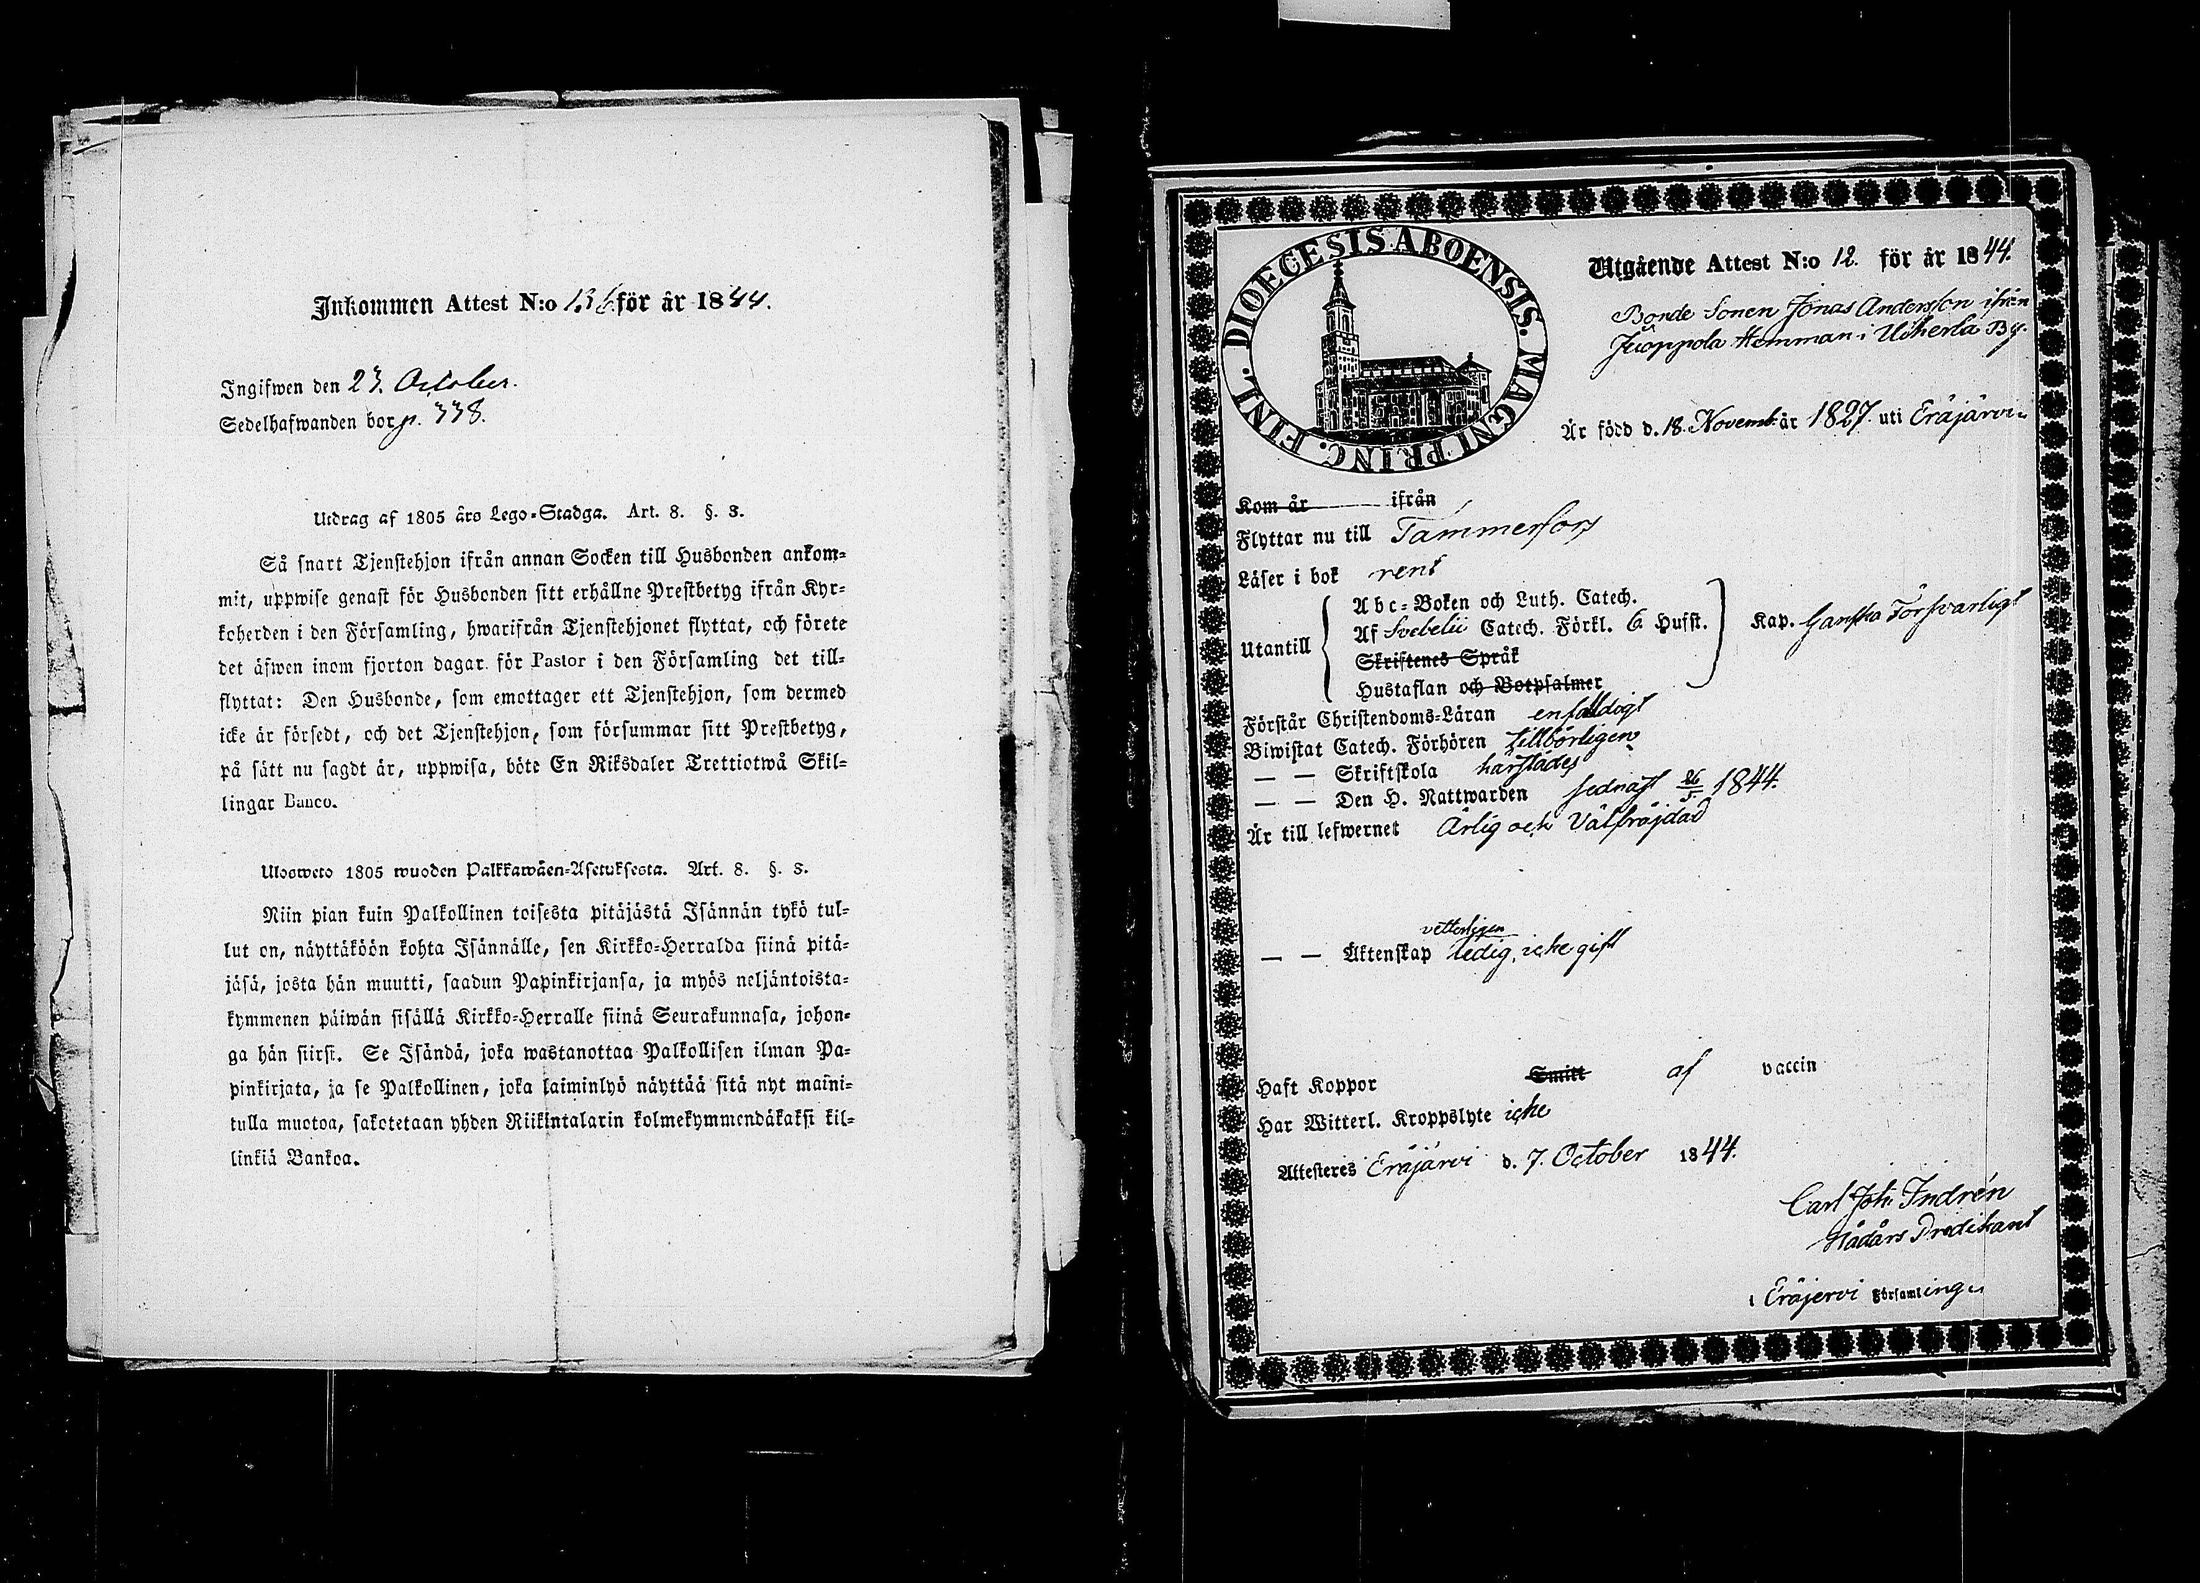 Inkommen Attest N:o 136 för år 1844.
Ingifwen den 23. October.
Sedelhafwanden bor p. 338.
Utdrag af 1805 års Lego-Stadga. Art. 8. §. 3.
Så snart Tjenstehjon ifrån annan Socken till Husbonden ankom-
mit, uppwise genast för Husbonden sitt erhållne Prestbetyg ifrån Kyr-
koherden i den Församling, hwarifrån Tjenstehjonet flyttat, och förete
det äfwen inom fjorton dagar för Pastor i den Församling det till-
flyttat: Den Husbonde, som emottager ett Tjenstehjon, som dermed
icke är försedt, och det Tjenstehjon, som försummar sitt Prestbetyg,
på sätt nu sagdt är, uppwisa, böte En Riksdaler Trettiotwå Skil-
lingar Banco.
Ulosweto 1805 wuoden Palkkawäen-Asetuksesta. Art. 8. §. 3.
Niin pian kuin Palkollinen toisesta pitäjästä Isännän tykö tul-
lut on, näyttäköön kohta Isännälle, sen Kirkko-Herralda siinä pitä-
jäsä, josta hän muutti, saadun Papinkirjansa, ja myös neljäntoista-
kymmenen päiwän sisällä Kirkko-Herralle siinä Seurakunnasa, johon-
ga hän siirst. Se Isändä, joka wastanottaa Palkollisen ilman Pa-
pinkirjata, ja se Palkollinen, joka laiminlyö näyttää sitä nyt maini-
tulla muotoa, sakotetaan yhden Riikintalarin kolmekymmendäkaksi kil-
linkiä Bankoa.
DIOECESIS ABOENSIS. MAGNI PRINC. FINL.
Utgående Attest N:o 12. för år 1844.
Bonde Sonen Jonas Andersson ifrån
Juoppola Hemman i Uiherla By.
Är född d. 18. Novemb. år 1827. uti Eräjärvi
Kom år ifrån
Flyttar nu till Tammerfors
Läser i bok rent
Utantill
Abc-Boken och Luth. Catech.
Af Svebelii Catech. Förkl. 6 Hufst.
Skriftenes Språk
Hustaflan och Botpsalmer
Kap. Ganska Försvarligt
Förstår Christendoms-Läran enfaldigt
Biwistat Catech. Förhören tillbörligen
— — Skriftskola härstädes
— — Den H. Nattwarden sednast 26/5 1844.
Är till lefwernet Ärlig och Välfräjdad
vetterligen
— — Äktenskap ledig, icke gift
Haft Koppor Smitt af vaccin
Har Witterl. Kroppslyte icke
Attesteres Eräjärvi d. 7. October 1844.
Carl Joh: Indrén
Nådårs Predikant
i Eräjervi Församling